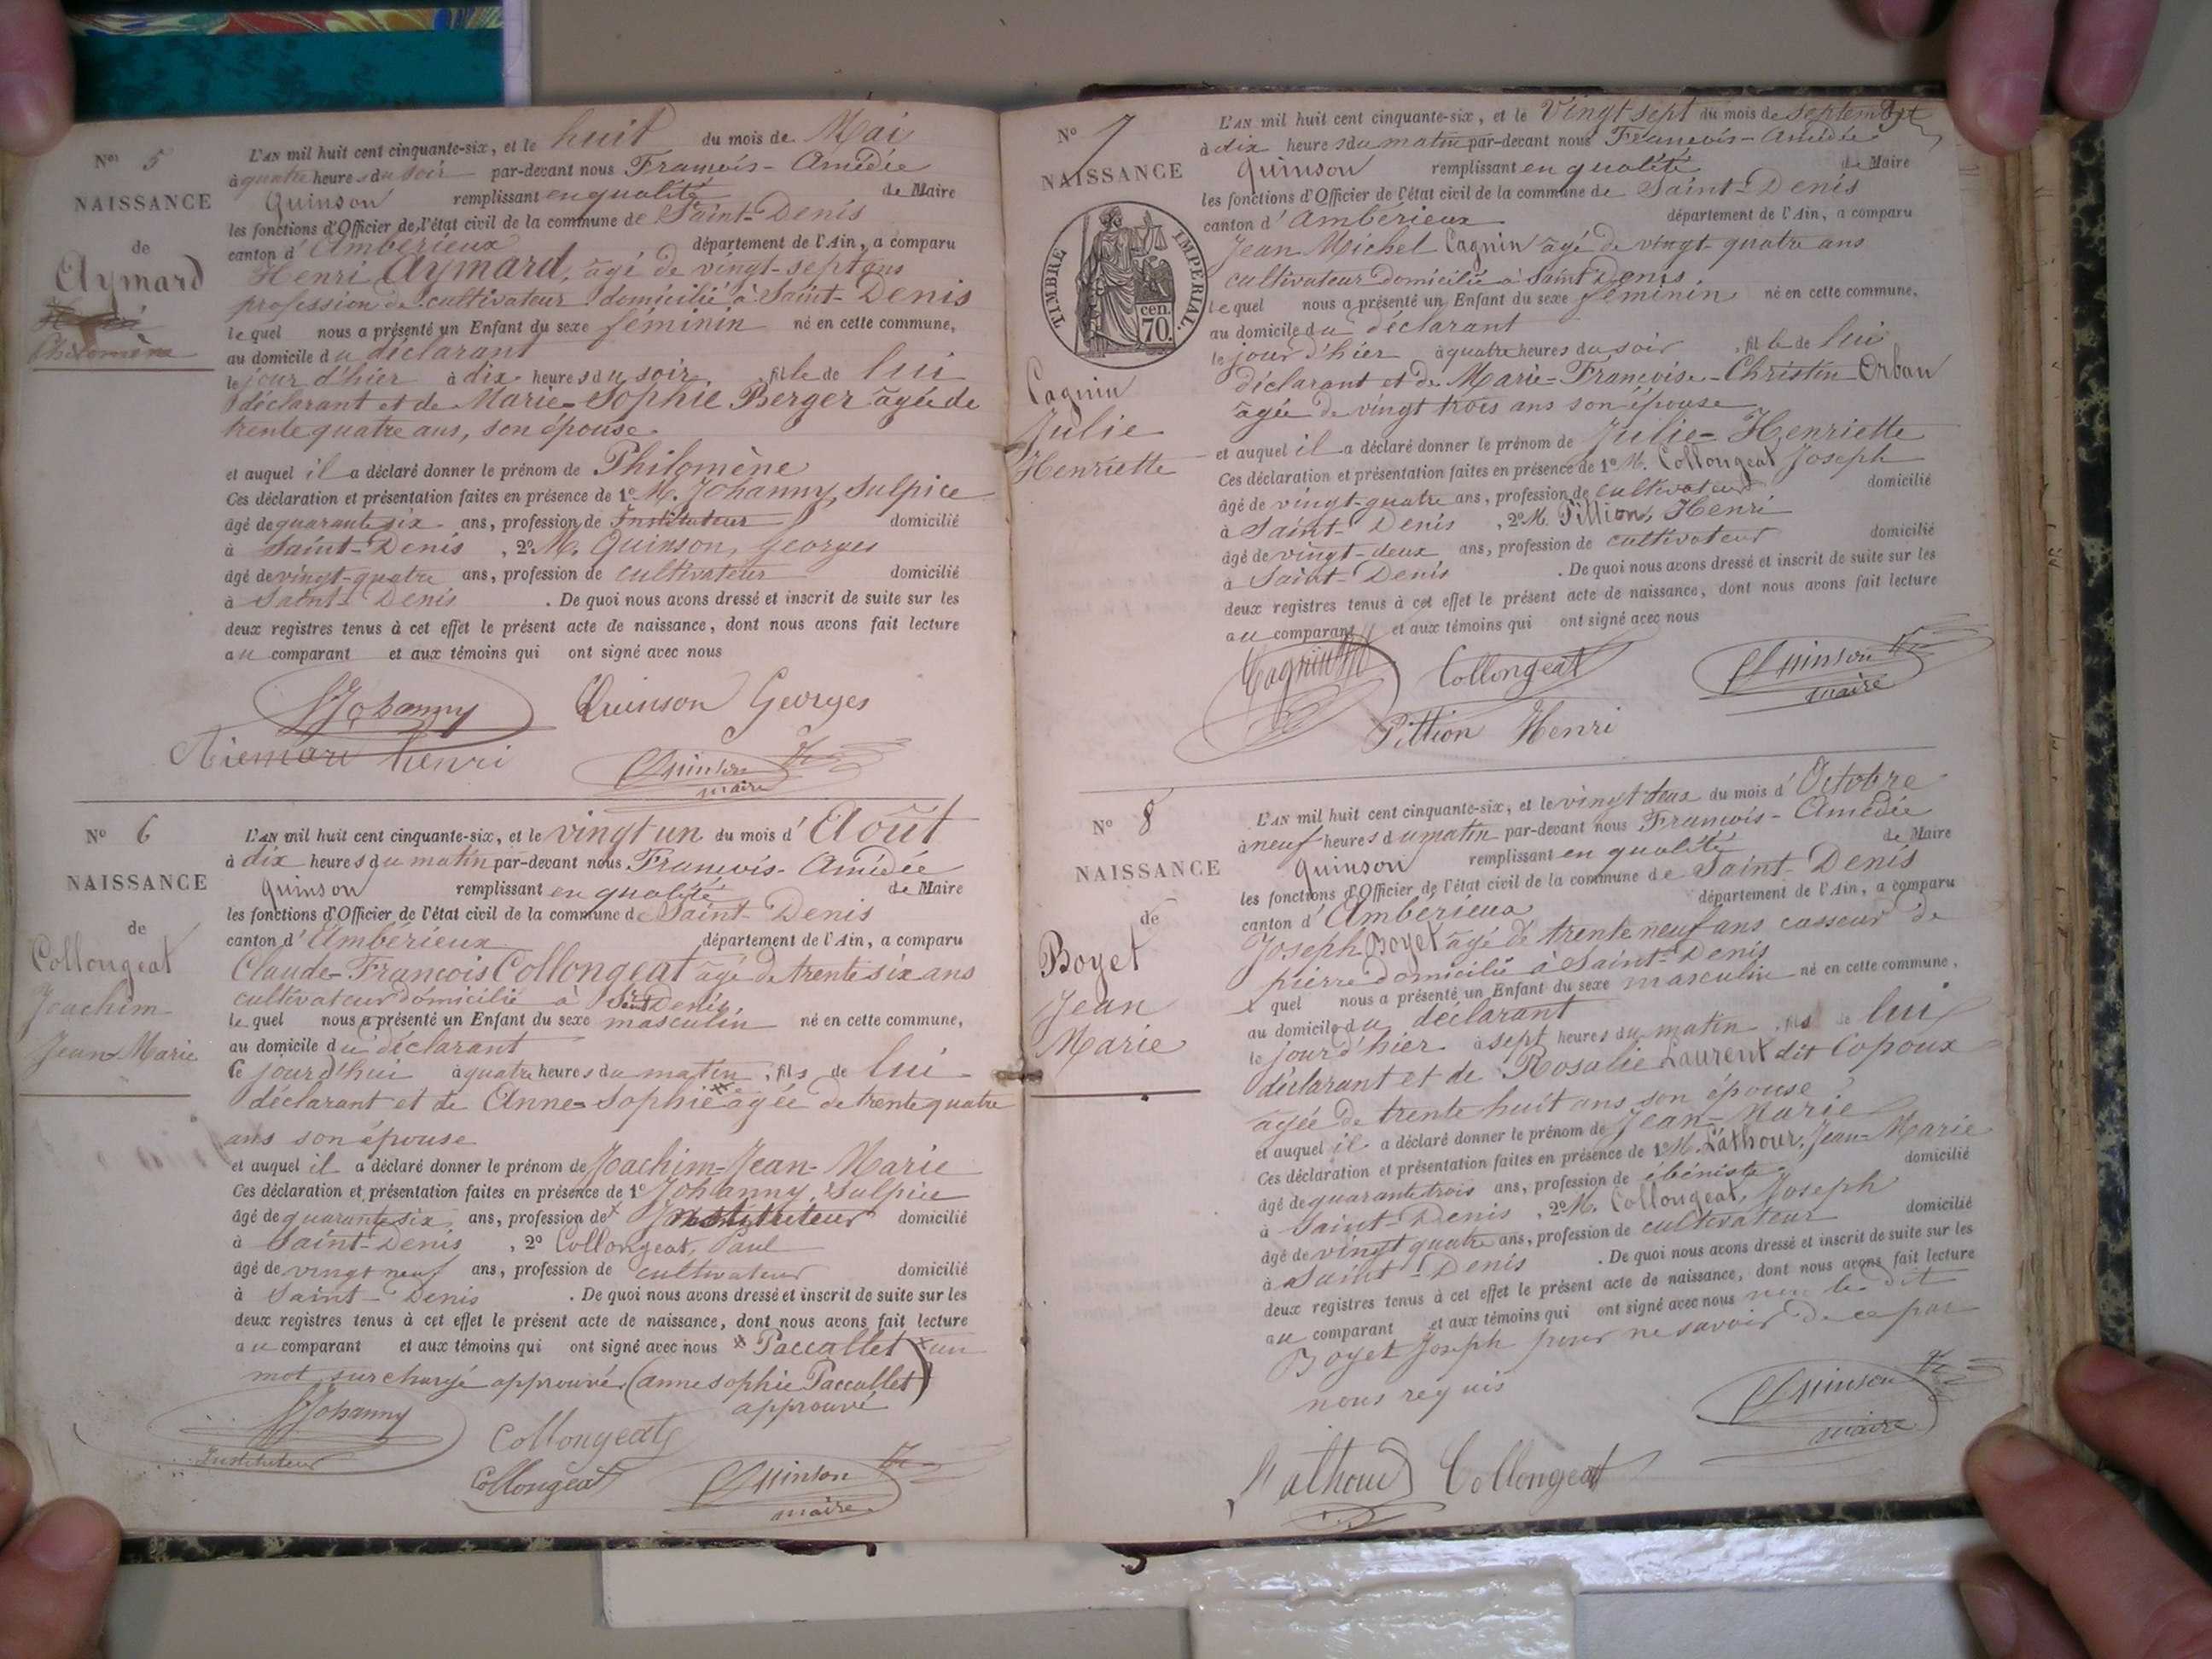 Nº 5
NAISSANCE
de
Aymard
Philomène
L'AN mil huit cent cinquante-six, et le huit du mois de Mai
à quatre heures du soir par-devant nous François-Amédée
Quinson remplissant en qualité de Maire
les fonctions d'Officier de l'état civil de la commune de Saint-Denis
canton d'Ambérieux département de l'Ain, a comparu
Henri Aymard, âgé de vingt-sept ans
profession de cultivateur domicilié à Saint-Denis
lequel nous a présenté un Enfant du sexe féminin né en cette commune,
au domicile du déclarant
le jour d'hier à dix heures du soir, fille de lui
déclarant et de Marie-Sophie Berger âgée de
trente quatre ans, son épouse
et auquel il a déclaré donner le prénom de Philomène
Ces déclaration et présentation faites en présence de 1º M. Johanny, Sulpice
âgé de quarante six ans, profession de Instituteur domicilié
à Saint-Denis, 2º M. Quinson, Georges
âgé de vingt-quatre ans, profession de cultivateur domicilié
à Saint-Denis. De quoi nous avons dressé et inscrit de suite sur les
deux registres tenus à cet effet le présent acte de naissance, dont nous avons fait lecture
au comparant et aux témoins qui ont signé avec nous
SJohanny Quinson Georges
Aiemare henri Quinson
maire
Nº 6
NAISSANCE
de
Collongeat
Joachim
Jean-Marie
L'AN mil huit cent cinquante-six, et le vingt un du mois d'Août
à dix heures du matin par-devant nous François-Amédée
Quinson remplissant en qualité de Maire
les fonctions d'Officier de l'état civil de la commune de Saint-Denis
canton d'Ambérieux département de l'Ain, a comparu
Claude-François Collongeat âgé de trente six ans
cultivateur domicilié à St Denis,
lequel nous a présenté un Enfant du sexe masculin né en cette commune,
au domicile du déclarant
ce jourd'hui à quatre heures du matin, fils de lui
déclarant et de Anne-Sophie × âgée de trente quatre
ans son épouse
et auquel il a déclaré donner le prénom de Joachim-Jean-Marie
Ces déclaration et présentation faites en présence de 1º Johanny, Sulpice
âgé de quarante six ans, profession de × Instituteur domicilié
à Saint-Denis, 2º Collongeat, Paul
âgé de vingt neuf ans, profession de cultivateur domicilié
à Saint-Denis. De quoi nous avons dressé et inscrit de suite sur les
deux registres tenus à cet effet le présent acte de naissance, dont nous avons fait lecture
au comparant et aux témoins qui ont signé avec nous × Paccallet × un
mot surchargé approuvé (anne sophie Paccallet)
approuvé
SJohanny
Instituteur
Collongeat
Collongeat Quinson
maire
Nº 7
NAISSANCE
TIMBRE IMPÉRIAL.
cen.
70.
Cagnin
Julie
Henriette
L'AN mil huit cent cinquante-six, et le Vingt sept du mois de septembre
à dix heures du matin par-devant nous François-Amédée
Quinson remplissant en qualité de Maire
les fonctions d'Officier de l'état civil de la commune de Saint-Denis
canton d'Ambérieux département de l'Ain, a comparu
Jean Michel Cagnin âgé de vingt-quatre ans
cultivateur domicilié à Saint Denis,
lequel nous a présenté un Enfant du sexe féminin né en cette commune,
au domicile du déclarant
le jour d'hier à quatre heures du soir, fille de lui
déclarant et de Marie-Françoise-Christin Orban
âgée de vingt trois ans son épouse
et auquel il a déclaré donner le prénom de Julie-Henriette
Ces déclaration et présentation faites en présence de 1º M. Collongeat Joseph
âgé de vingt-quatre ans, profession de cultivateur domicilié
à Saint-Denis, 2º M. Pittion, Henri
âgé de vingt-deux ans, profession de cultivateur domicilié
à Saint-Denis. De quoi nous avons dressé et inscrit de suite sur les
deux registres tenus à cet effet le présent acte de naissance, dont nous avons fait lecture
au comparant et aux témoins qui ont signé avec nous
Cagnin Collongeat Quinson
maire
Pittion Henri
Nº 8
NAISSANCE
de
Boyet
Jean
Marie
L'AN mil huit cent cinquante-six, et le vingt deux du mois d'Octobre
à neuf heures du matin par-devant nous François-Amédée
Quinson remplissant en qualité de Maire
les fonctions d'Officier de l'état civil de la commune de Saint-Denis
canton d'Ambérieux département de l'Ain, a comparu
Joseph Boyet âgé de trente neuf ans casseur de
pierre domicilié à Saint-Denis
lequel nous a présenté un Enfant du sexe masculin né en cette commune,
au domicile du déclarant
le jour d'hier à sept heures du matin, fils de lui
déclarant et de Rosalie Laurent dit Copoux
âgée de trente huit ans son épouse
et auquel il a déclaré donner le prénom de Jean-Marie
Ces déclaration et présentation faites en présence de 1º M. Lathour, Jean-Marie
âgé de quarante trois ans, profession de ébéniste domicilié
à Saint-Denis, 2º M. Collongeat, Joseph
âgé de vingt quatre ans, profession de cultivateur domicilié
à Saint-Denis. De quoi nous avons dressé et inscrit de suite sur les
deux registres tenus à cet effet le présent acte de naissance, dont nous avons fait lecture
au comparant et aux témoins qui ont signé avec nous non le dit
Boyet Joseph pour ne savoir de ce par
nous requis
Quinson
maire
Collongeat